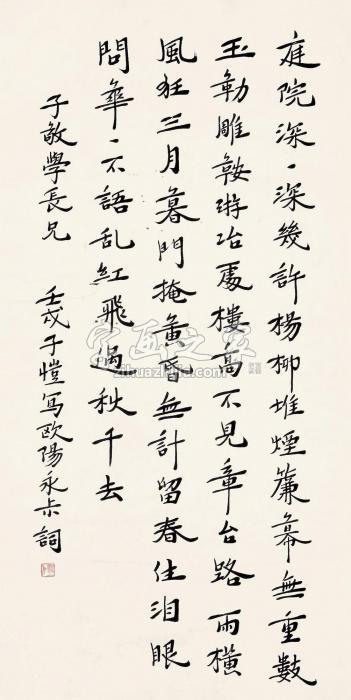 庭院深〻深幾許楊柳堆煙簾幕無重數
玉勒雕鞍游冶處樓高不見章台路雨橫
風狂三月暮門掩黃昏無計留春住泪眼
問華〻不語乱紅飛過秋千去
子敏學長兄 壬戌子愷写歐陽永叔詞
字画之家
zihuazhijia.com